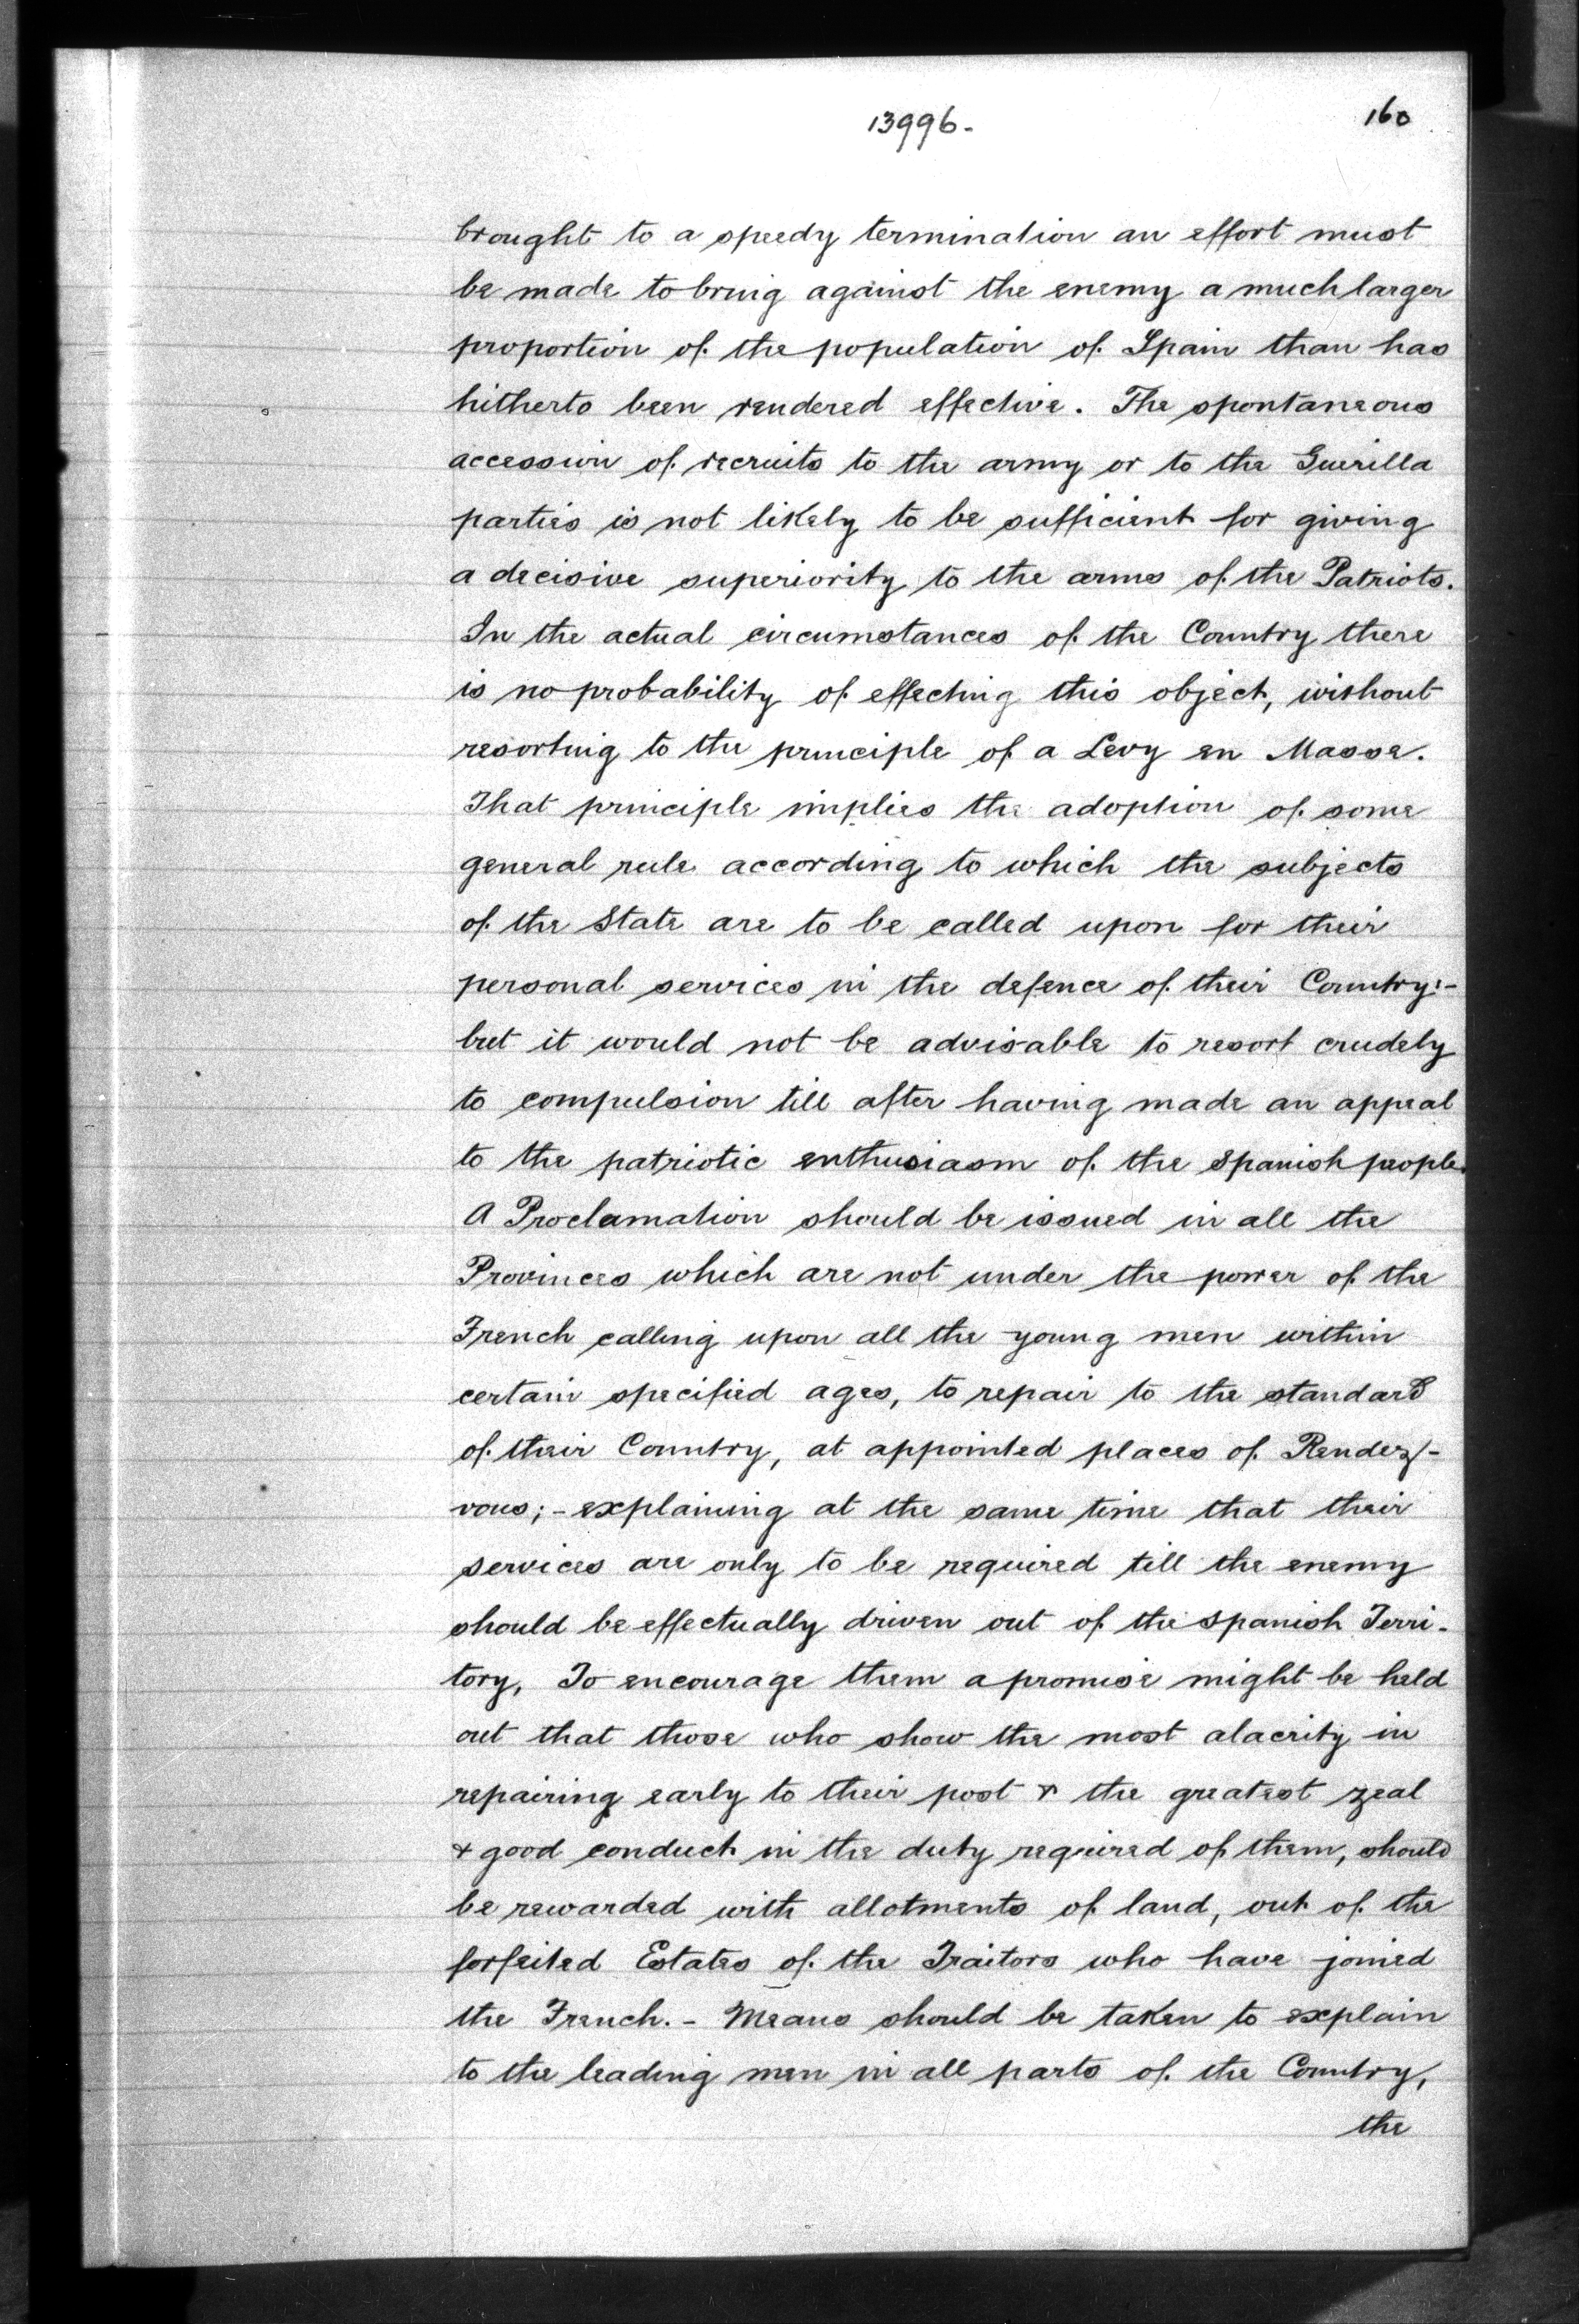 13996-
160
brought to a speedy termination an effort must
be made to bring against the enemy a much larger
proportion of the population of Spain than has
hitherto been rendered effective. The spontaneous
accession of recruits to the army or to the Guerilla
parties is not likely to be sufficient for giving
a decisive superiority to the arms of the Patriots.
In the actual circumstances of the Country there
is no probability of effecting this object, without
resorting to the principle of a Levy en Masse.
That principle implies the adoption of some
general rule according to which the subjects
of the State are to be called upon for their
personal services in the defence of their Country:-
but it would not be advisable to resort crudely
to compulsion till after having made an appeal
to the patriotic enthusiasm of the Spanish people.
A Proclamation should be issued in all the
Provinces which are not under the power of the
French calling upon all the young men within
certain specified ages, to repair to the standard
of their Country, at appointed places of Rendez-
vous;- explaining at the same time that their
services are only to be required till the enemy
should be effectually driven out of the Spanish Terri-
tory, To encourage them a promise might be held
out that those who show the most alacrity in
repairing early to their post & the greatest zeal
& good conduct in the duty required of them, should
be rewarded with allotments of land, out of the
forfeited Estates of the Traitors who have joined
the French.- Means should be taken to explain
to the leading men in all parts of the Country,
the